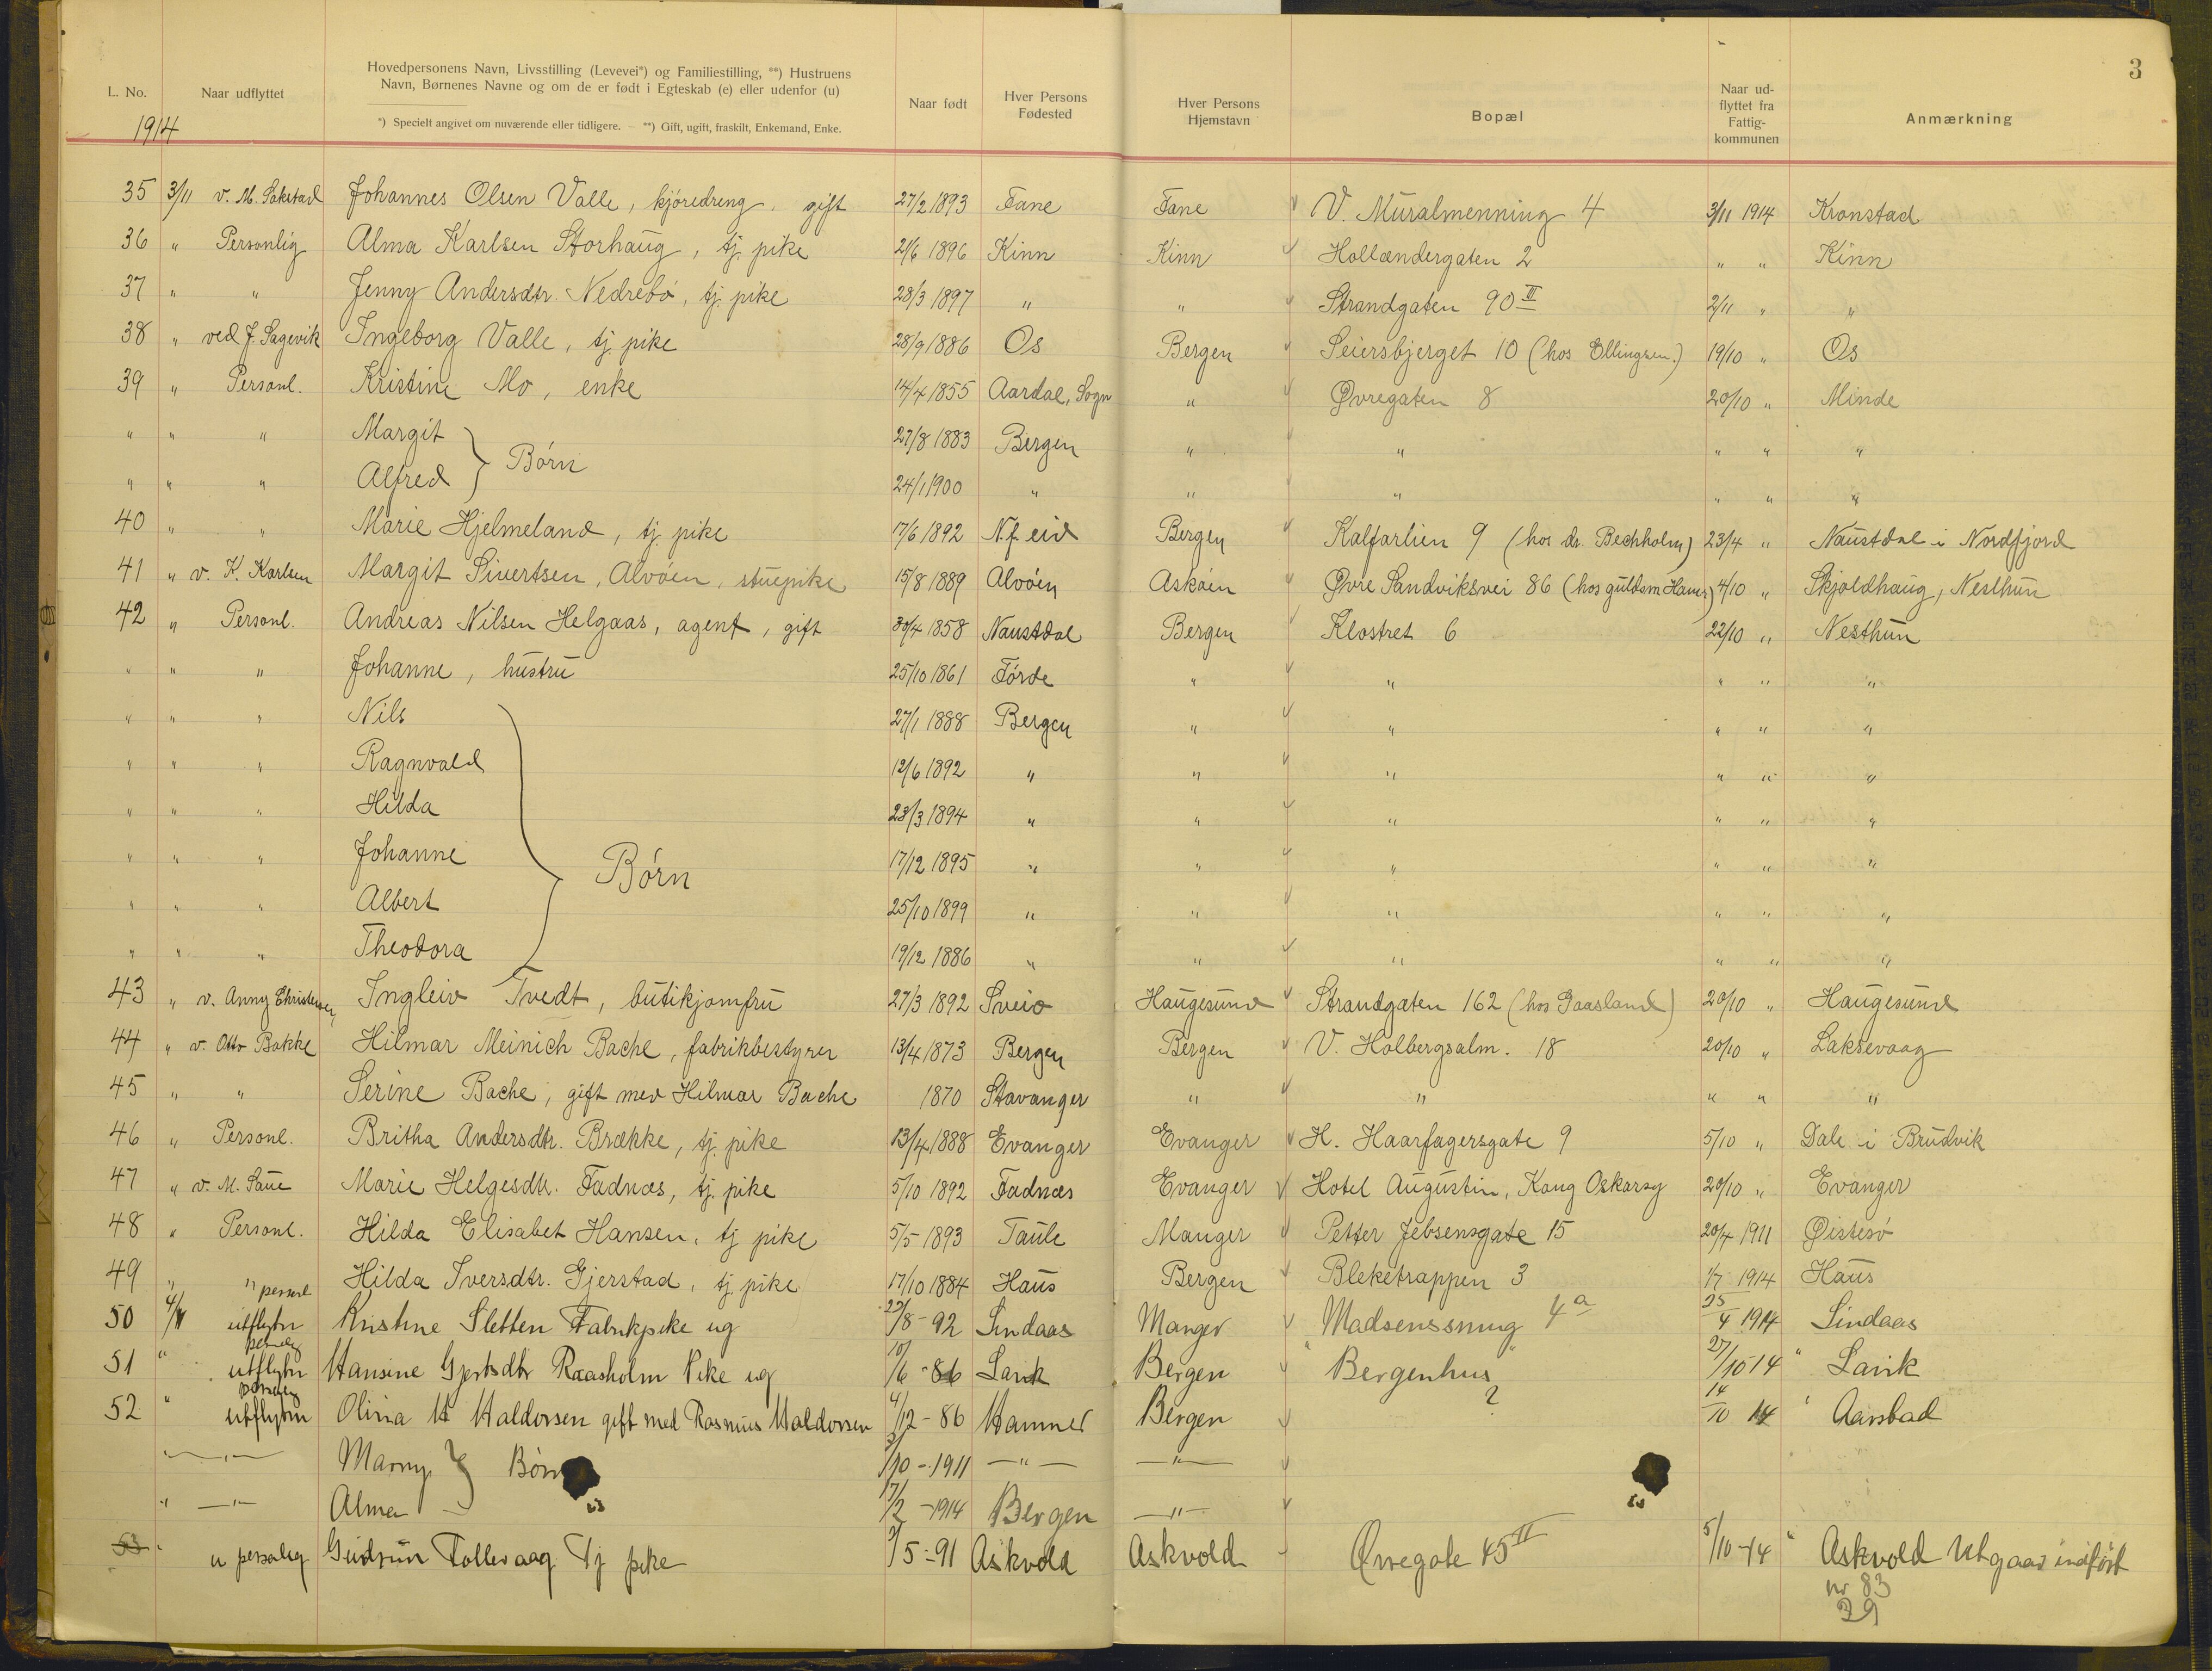 3
L. No. Naar udflyttet Hovedpersonens Navn, Livsstilling (Levevei*) og Familiestilling, **) Hustruens Navn, Børnenes Navne og om de er født i Egteskab (e) eller udenfor (u) Naar født Hver Persons Fødested Hver Persons Hjemstavn Bopæl Naar ud-flyttet fra Fattig-kommunen Anmærkning
*) Specielt angivet om nuværende eller tidligere. — **) Gift, ugift, fraskilt, Enkemand, Enke.
1914
35 3/11 v. M. Sakstad Johannes Olsen Valle, kjóredreng, gift 27/2 1893 Fane Fane V. Muralmenning 4 3/11 1914 Kronstad
36 " Personlig Alma Karlsen Storhaug, tj. pike 2/6 1896 Kinn Kinn Hollændergaten 2 " " Kinn
37 " " Jenny Andersdtr. Nedrebó, tj. pike 28/3 1897 " " Strandgaten 90 III 2/11 " "
38 " ved J. Sagevik Ingeborg Valle, tj. pike 28/9 1886 Os Bergen Seiersbjerget 10 (hos Ellingsen.) 19/10 " Os
39 " Personl. Kristine Mo, enke 14/4 1855 Aardal, Sogn " Øvregaten 8 20/10 " Minde
" " " Margit } Børn 27/8 1883 Bergen " " " " "
" " " Alfred 24/1 1900 " " " " " "
40 " " Marie Hjelmeland, tj. pike 17/6 1892 N.f. eid Bergen Kalfarlien 9 (hos dr. Bechholm) 23/4 " Naustdal i Nordfjord
41 " v. K. Karlsen Margit Sivertsen, Alvóen, stuepike 15/8 1889 Alvóen Askóen Øvre Sandviksvei 86 (hos guldsm. ) 4/10 " Skjoldhaug, Nesthun
42 " Personl. Andreas Nilsen Helgaas, agent, gift 30/4 1858 Naustdal Bergen Klostret 6 22/10 " Nesthun
" " " Johanne, hustru 25/10 1861 Fórde " " " " "
" " " Nils 27/1 1888 Bergen " " " " "
" " " Ragnvald 12/6 1892 " " " " " "
" " " Hilda 28/3 1894 " " " " " "
" " " Johanne } Børn 17/12 1895 " " " " " "
" " " Albert 25/10 1899 " " " " " "
" " " Theodora 19/12 1886 " " " " " "
43 " v. Anny Christensen, Ingleiv Tvedt, butikjomfru 27/3 1892 Sveio Haugesund Strandgaten 162 (hos Gaasland) 20/10 " Haugesund
44 " v. Otto Bakke Hilmar Meinich Bache, fabrikbestyrer 13/4 1873 Bergen Bergen V. Holbergsalm. 18 20/10 " Laksevaag
45 " " Serine Bache, gift med Hilmar Bache 1870 Stavanger " " " " "
46 " Personl. Britha Andersdtr. Brække, tj. pike 13/4 1888 Evanger Evanger H. Haarfagersgate 9 5/10 " Dale i Brudvik
47 " v. M. Saue Marie Helgesdtr. Fadnæs, tj. pike 5/10 1892 Fadnæs Evanger Hotel Augustin, Kong Oskarsg 20/10 " Evanger
48 " Personl. Hilda Elisabet Hansen, tj pike 5/5 1893 Taule Manger Petter Jebsensgate 15 20/4 1911 Øistesó
49 " " personl Hilda Iversdtr. Gjerstad, tj. pike 17/10 1884 Haus Bergen Bleketrappen 3 1/7 1914 Haus
50 4/11 utflyttn personlig Kristine Sletten Fabrikpike ug 22/8-92 Lindaas Manger Madsenssmug 4a 25/4 1914 Lindaas
51 " utflyttn personlig Hansine Gjertsdtr Raasholm Pike ug 10/6-86 Larik Bergen " Bergenhus " 27/10-14 " Larik
52 " utflyttn Olina H Haldorsen gift med Rasmus Haldorsen 4/12-86 Hammer Bergen ? 14/10 14 " Aarstad
—"— Marny } Børn /10-1911 —"— —"—
" —"— Alma 17/2-1914 Bergen —"—
53 " u personlig Gudrun Follevaag Tj pike 9/5-91 Askvold Askvold Øvregate 45 II 5/10-14 " Askvold Utgaar indfört
nr 83
39